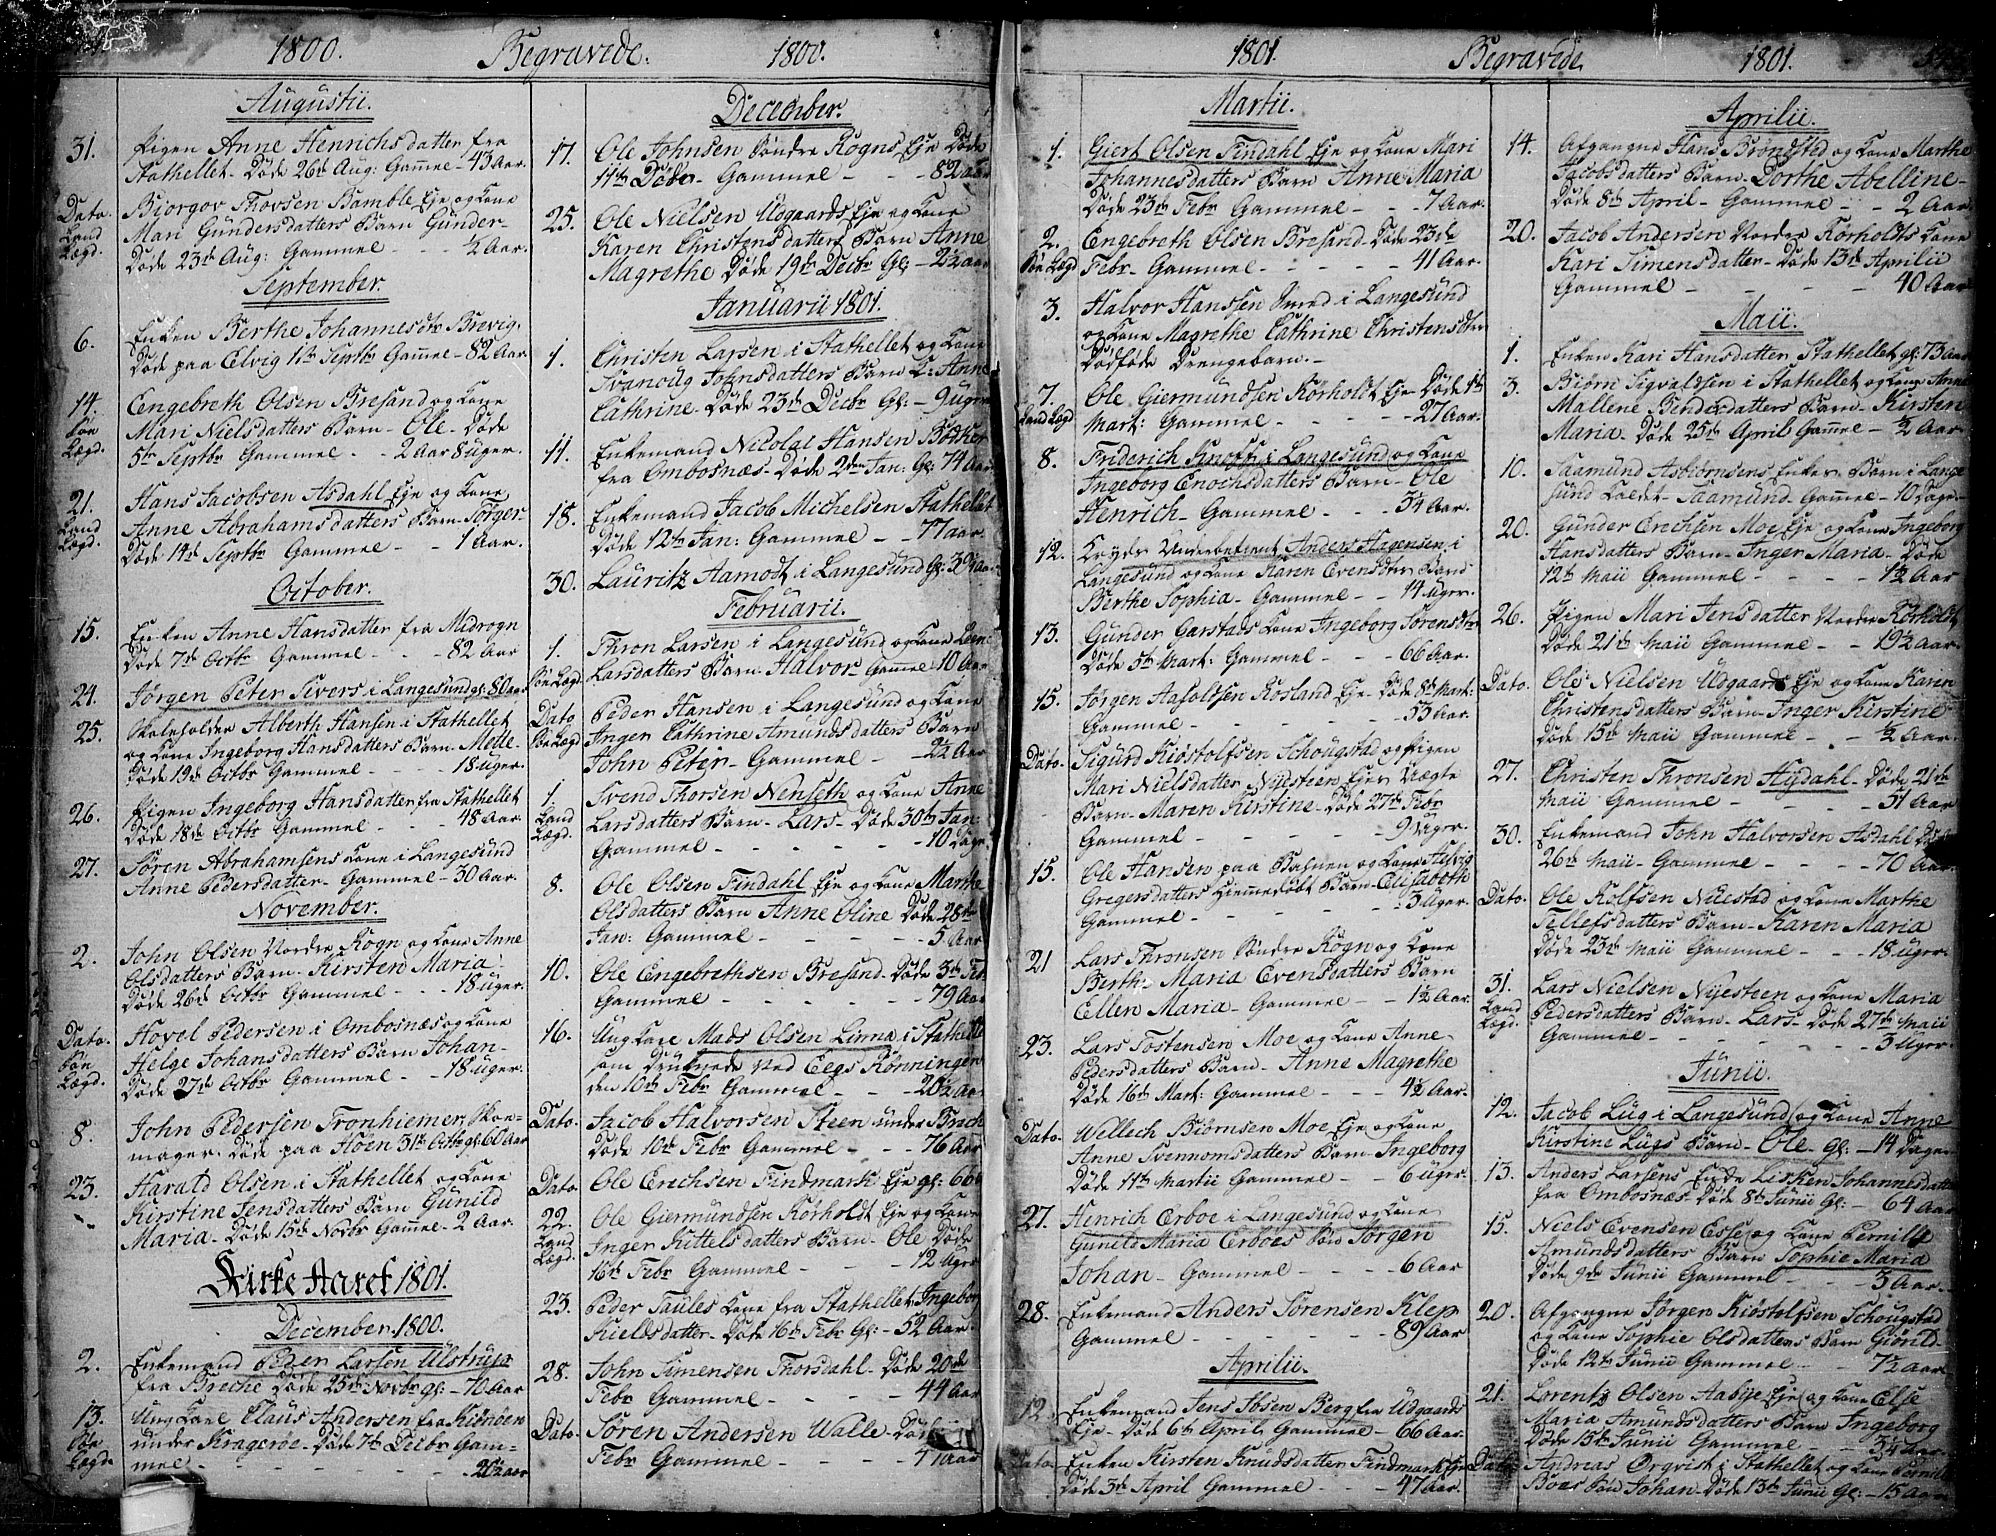 1800. Begravede. 1800.
Augustii.
31. Pigen Anne Henrichsdatter fra
Stathellet - Døde 26de Aug: Gammel - 43 Aar.
Dato. Biorgov Thovsen Bamble Eje og Kone
Land Mari Gündersdatters Barn Günder -
Lægd. Døde 23de Aug: Gammel - - ½ Aar.
September.
6. Enken Berthe Johannesdtr Brevig.
Døde paa Elvig 1te Septbr Gammel - 82 Aar
14. Engebreth Olsen Bresand og Kone
Søe Mari Nielsdatters Barn - Ole - Døde
Lægd. 5te Septbr Gammel - - 2 Aar 8 uger.
21. Hans Jacobsen Asdahl Eje og Kone
Land Anne Abrahamsdatters Barn Torger -
Lægd. Døde 14de Septbr Gammel - - 1 Aar.
October.
15. Enken Anne Hansdatter fra Midrogn
Døde 7de Octbr Gammel - - 82 Aar
24. Jørgen Peter Sivers i Langesund gl: 80 aar
25. Skoleholder Alberth Hansen i Stathellet
og Kone Ingeborg Hansdatters Barn - Mette -
Døde 19de Octbr Gammel - - 18 uger.
26. Pigen Ingeborg Hansdatter fra Stathellet
Døde 18de Octbr Gammel - - 48 Aar.
27. Søren Abrahamsens Kone i Langesünd
Anne Pedersdatter - Gammel - 30 Aar.
November.
2. John Olsen Nordre Rogn og Kone Anne
Olsdatters Barn - Kirsten Maria
Døde 26de Octbr Gammel - - 18 uger.
Dato. Hovel Pedersen i Ombosnæs og Kone
Søe Helge Johansdatters Barn Johan -
Lægd. Døde 27de Octbr Gammel - - 18 uger.
8. John Pedersen Tronhiemer, Skoe-
mager. Døde paa Høen 31te Octbr gl: 60 Aar
23. Harald Olsen i Stathellet og Kone
Kirstine Jensdatters Barn Gunild
Maria - Døde 15de Novbr Gammel - 2 Aar.
Kirke Aaret 1801.
December 1800.
2. Enkemand Peder Larsen Ulstrup
fra Breche Døde 25de Novbr gl: - 70 Aar
13. Ung Karl Claus Andersen fra Kiønøen
Søe under Kragerøe - Døde 7de Decbr Gam-
Lægd. mel - - - - 20½ aar
December.
17. Ole Johnsen Søndre Rogns Eje Døde
11te Døde - Gammel - - 82 Aar
25. Ole Nielsen Udgaards Eje og Kone
Karen Christensdatters Barn Anne
Magrethe Døde 19de Decbr Gl: - 2½ aar
Januarii 1801.
1. Christen Larsen i Stathellet og Kone
Svanoüg Johnsdatters Barn C: Anne
Cathrine - Døde 23de Decbr Gl: - 9 uger
11. Enkemand Nicolai Hansen Bødker
fra Ombosnæs - Døde 2den Jan: Gl: 74 Aar
18. Enkemand Jacob Michelsen Stathellet
Døde 12te Jan: Gammel - - 77 aar.
30. Lauritz Aamodt i Langesund Gl: 30½ Aar
Februarii.
1. Thron Larsen i Langesünd og Kone
Søe Lægd Larsdatters Barn - Halvor Gammel 10 Aar
Dato Peder Hansen i Langesünd og Kone
Søe Lægd. Inger Cathrine Amundsdatters Barn
John Peter - Gammel - - 2½ Aar
1. Svend Thorsen Nenseth og Kone Anne
Land Larsdatters Barn - Lars - Døde 30te Jan -
Lægd. Gammel - - - - 10 Dage
8. Ole Olsen Findahl Eje og Kone Marthe
Olsdatters Barn Anne Oline Døde 28de
Jan: Gammel - - - - 5 Aar
10. Ole Engebrethsen Bresand - Døde 3de Feb
Gammel - - - - 79 Aar
16. Ung Karl Mads Olsen Linna i Stathelle
som Druknede ved Eegs Rønningen
den 10te Febr Gammel - - 20½ Aar
Dato. Jacob Halvorsen Steen under
Døde 10te Febr Gammel - - 76 Aar
Dato Ole Erichsen Findmark Eje gl: 66
22. Ole Giermundsen Kørholdt Eje og Kone
Land Inger Kittelsdatters Barn - Ole Døde
Lægd. 16te Febr Gammel - - 12 Uger
23. Peder Taules Kone fra Stathellet Ingeborg
Kieldsdatter - Døde 16te Febr Gl: - 52 Aar.
28. John Simensen Thorsdahl - Døde 20de
Febr Gammel - - - 44 Aar
Dato. Søren Andersen Walle - Døde
Febr Gammel - - - Aar
1801. Begravede 1801.
Martii.
1. Giert Olsen Findahl Eje og Kone Mari
Johannesdatters Barn Anne Maria
Døde 23de Febr Gammel - - 7 Aar.
2. Engebreth Olsen Bresand - Døde 23de
Søe Lægd Febr - Gammel - - - 41 Aar.
3. Halvor Hanssen Smed i Langesünd
og Kone Magrethe Cathrine Christensdtrs
Dødføde Drengebarn. -
7. Ole Giermündsen Kørholt Eje Døde 1te
Land Lægd Mart: Gammel - - - 27 Aar.
8. Friderich Knoph i Langesünd og Kone
Ingeborg Enochsdatters Barn - Ole
Henrich - Gammel - - 5¼ Aar.
12. Krigs Underbetient Anders Hagensen i
Langesünd og Kone Karen Evensdtrs Barn
Berthe Sophia - Gammel - - 14 uger.
13. Günder Garstads Kone Ingeborg Sørensdtr
Døde 5te Mart: Gammel - - - 66 Aar.
15. Jørgen Aasolfsen Rosland Eje - Døde 8de Mart:
Gammel - - - - 53 Aar.
Dato. Sigurd Kiøstolfsen Schougstad og Pigen
Mari Nielsdatter Nyesteen Ejes Uægte
Barn - Maren Kirstine - Døde 27de Febr
Gammel - - - - 9 Uger.
15. Ole Hansen paa og Kone Helvig
Gregersdatters hiemmedøbt Barn - Elisabeth
Gammel - - - - 3 Uger.
21 Lars Thronsen Søndre Rogn og Kone
Berthe Maria Evensdatters Barn
Ellen Maria - Gammel - - 1½ Aar.
23. Lars Tostensen Moe og Kone Anne
Pedersdatters Barn - Anne Magrethe
Døde 16te Mart: Gammel - - 4½ Aar.
Dato Wellech Biørnsen Moe Eje og Kone
Anne Svennomsdatters Barn - Ingeborg
Døde 11te Martii Gammel - - 6 uger.
27. Henrich Erboe i Langesünd og Kone
Gunild Maria Erboes Søn Jørgen
Johan - Gammel - - - 6 Aar
28. Enkemand Anders Sørensen Klep
Gammel - - - - 89 Aar
Aprilii.
12. Enkemand Jens Ibsen Berg fra Udgaards
Eje - Døde 6te April Gammel - - 66 Aar.
Dato. Enken Kirsten Knudsdatter Findmark Eje
Døde 3de April Gammel - - - 47 Aar.
Aprilii.
14. Afgangne Hans Brøndsted og Kone Marthe
Jacobsdatters Barn - Dorthe Abelline -
Døde 8de April - Gammel - - 2 Aar.
20. Jacob Andersen Nordre Kørholts Kone
Kari Simensdatter - Døde 13de Aprilii
Gammel - - - - 40 Aar
Maii.
1. Enken Kari Hansdatter Stathellet gl: 73 aar
3. Biørn Sigvaldsen i Stathellet og Kone Anne
Mallene Bendixdatters Barn - Kirsten
Maria - Døde 25de April Gammel - ½ Aar.
10. Saamünd Asbiørnsens Enkes Barn i Lange
sünd kaldet - Saamünd - Gammel - 10 Dage -
20. Günder Erichsen Moe Eje og Kone Ingeborg
Hansdatters Barn - Inger Maria - Døde
12te Maii Gammel - - - 1½ Aar
26. Pigen Mari Jensdatter Nordre Kørholt
Døde 21de Maii Gammel - - 19½ Aar.
Dato. Ole Nielsen Udgaards Eje og Kone Karen
Christensdatters Barn - Inger Kirstine
Døde 15de Maii Gammel - - ½ Aar.
27. Christen Thronsen Hydahl - Døde 21de
Maii Gammel - - - 51 Aar
30. Enkemand John Halvorsen Asdahl Døde
26te Maii - Gammel - - - 70 Aar.
Dato. Ole Rolfsen Nüestad og Kone Marthe
Tellefsdatters Barn - Karen Maria
Døde 23de Maii Gammel - - 18 uger.
31. Lars Nielsen Nyesteen og Kone Maria
Land Pedersdatters Barn - Lars - Døde 27de Maii
Lægd. Gammel - - - - 3 Uger.
Junii.
12. Jacob Lüg i Langesünd og Kone Anne
Kirstine Lügs Barn - Ole - gl: - 14 Dage
13. Anders Larsens Enke Lisken Johannesdatter
fra Ombosnæs - Døde 8de Junii Gl: - 64 Aar
15. Niels Evensen Esse og Kone Pernille
Amündsdatters Barn Sophie Maria
Døde 9de Junii Gammel - - 3 Aar.
20. Afgangne Jørgen Kiøstolfsen Schougstad
og Kone Sophie Olsdatters Barn
Døde 12te Junii Gammel - - 7½ Aar
21. Lorentz Olsen Aabye Eje og Kone Else
Maria Amündsdatters Barn Ingeborg
Døde 15de Junii Gammel - - 3¼ Aar.
Dato Andreas Ørqvist i Stathellet og Kone Pernille
Boes Søn Johan - Døde 13de Junii Gl: - 15 Aar